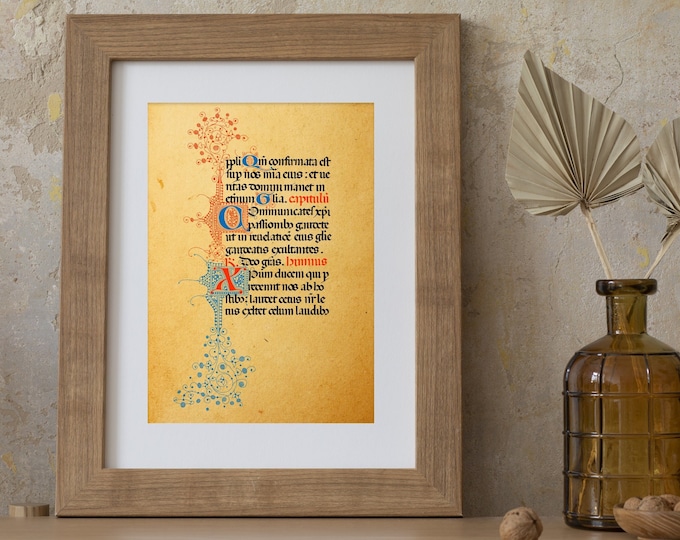 ppli Qm̄ confirmata est
sup nos m̄a eius : et ue
ritas domini manet in
etinum Glia. capitulū
Communicātes xpi
passionibꝫ gaudete
ut in reuelatiōe eius glie
gaudeatis exultantes.
R. Deo grās. himnus
Xpūm ducem qui p
crucem nos ab ho
stibꝫ : laudet cetus nr̄ le
tus exltet celum laudibꝫ